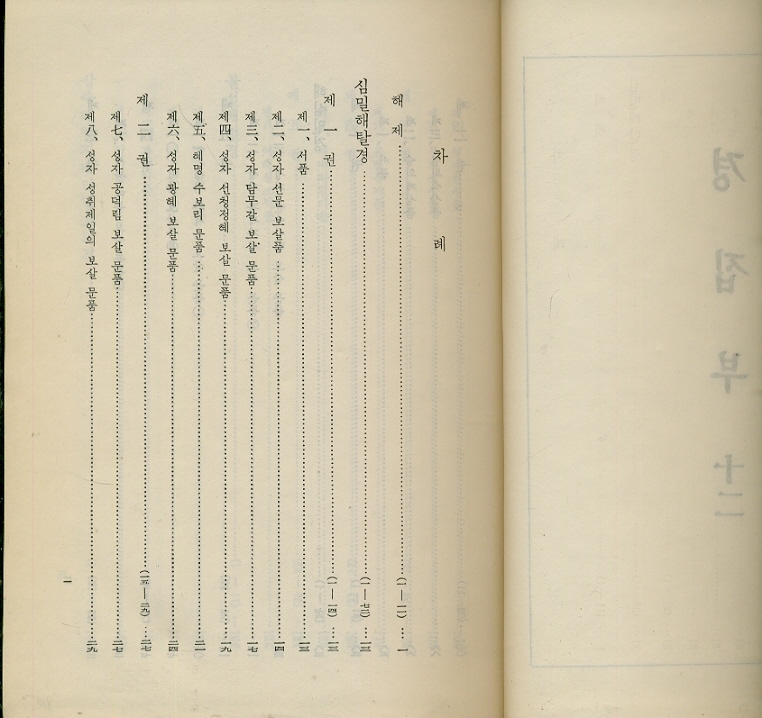 차 례
해 제 (一—一二) 一
심밀해탈경 (一—七二) 一三
제 一 권 (一—一四) 一三
제一、서품 一三
제二、성자 선문 보살품 一四
제三、성자 담무갈 보살 문품 一七
제四、성자 선청정혜 보살 문품 一九
제五、혜명 수보리 문품 二一
제六、성자 광혜 보살 문품 二四
제 二 권 (一五—二九) 二七
제七、성자 공덕림 보살 문품 二七
제八、성자 성취제일의 보살 문품 二九
一